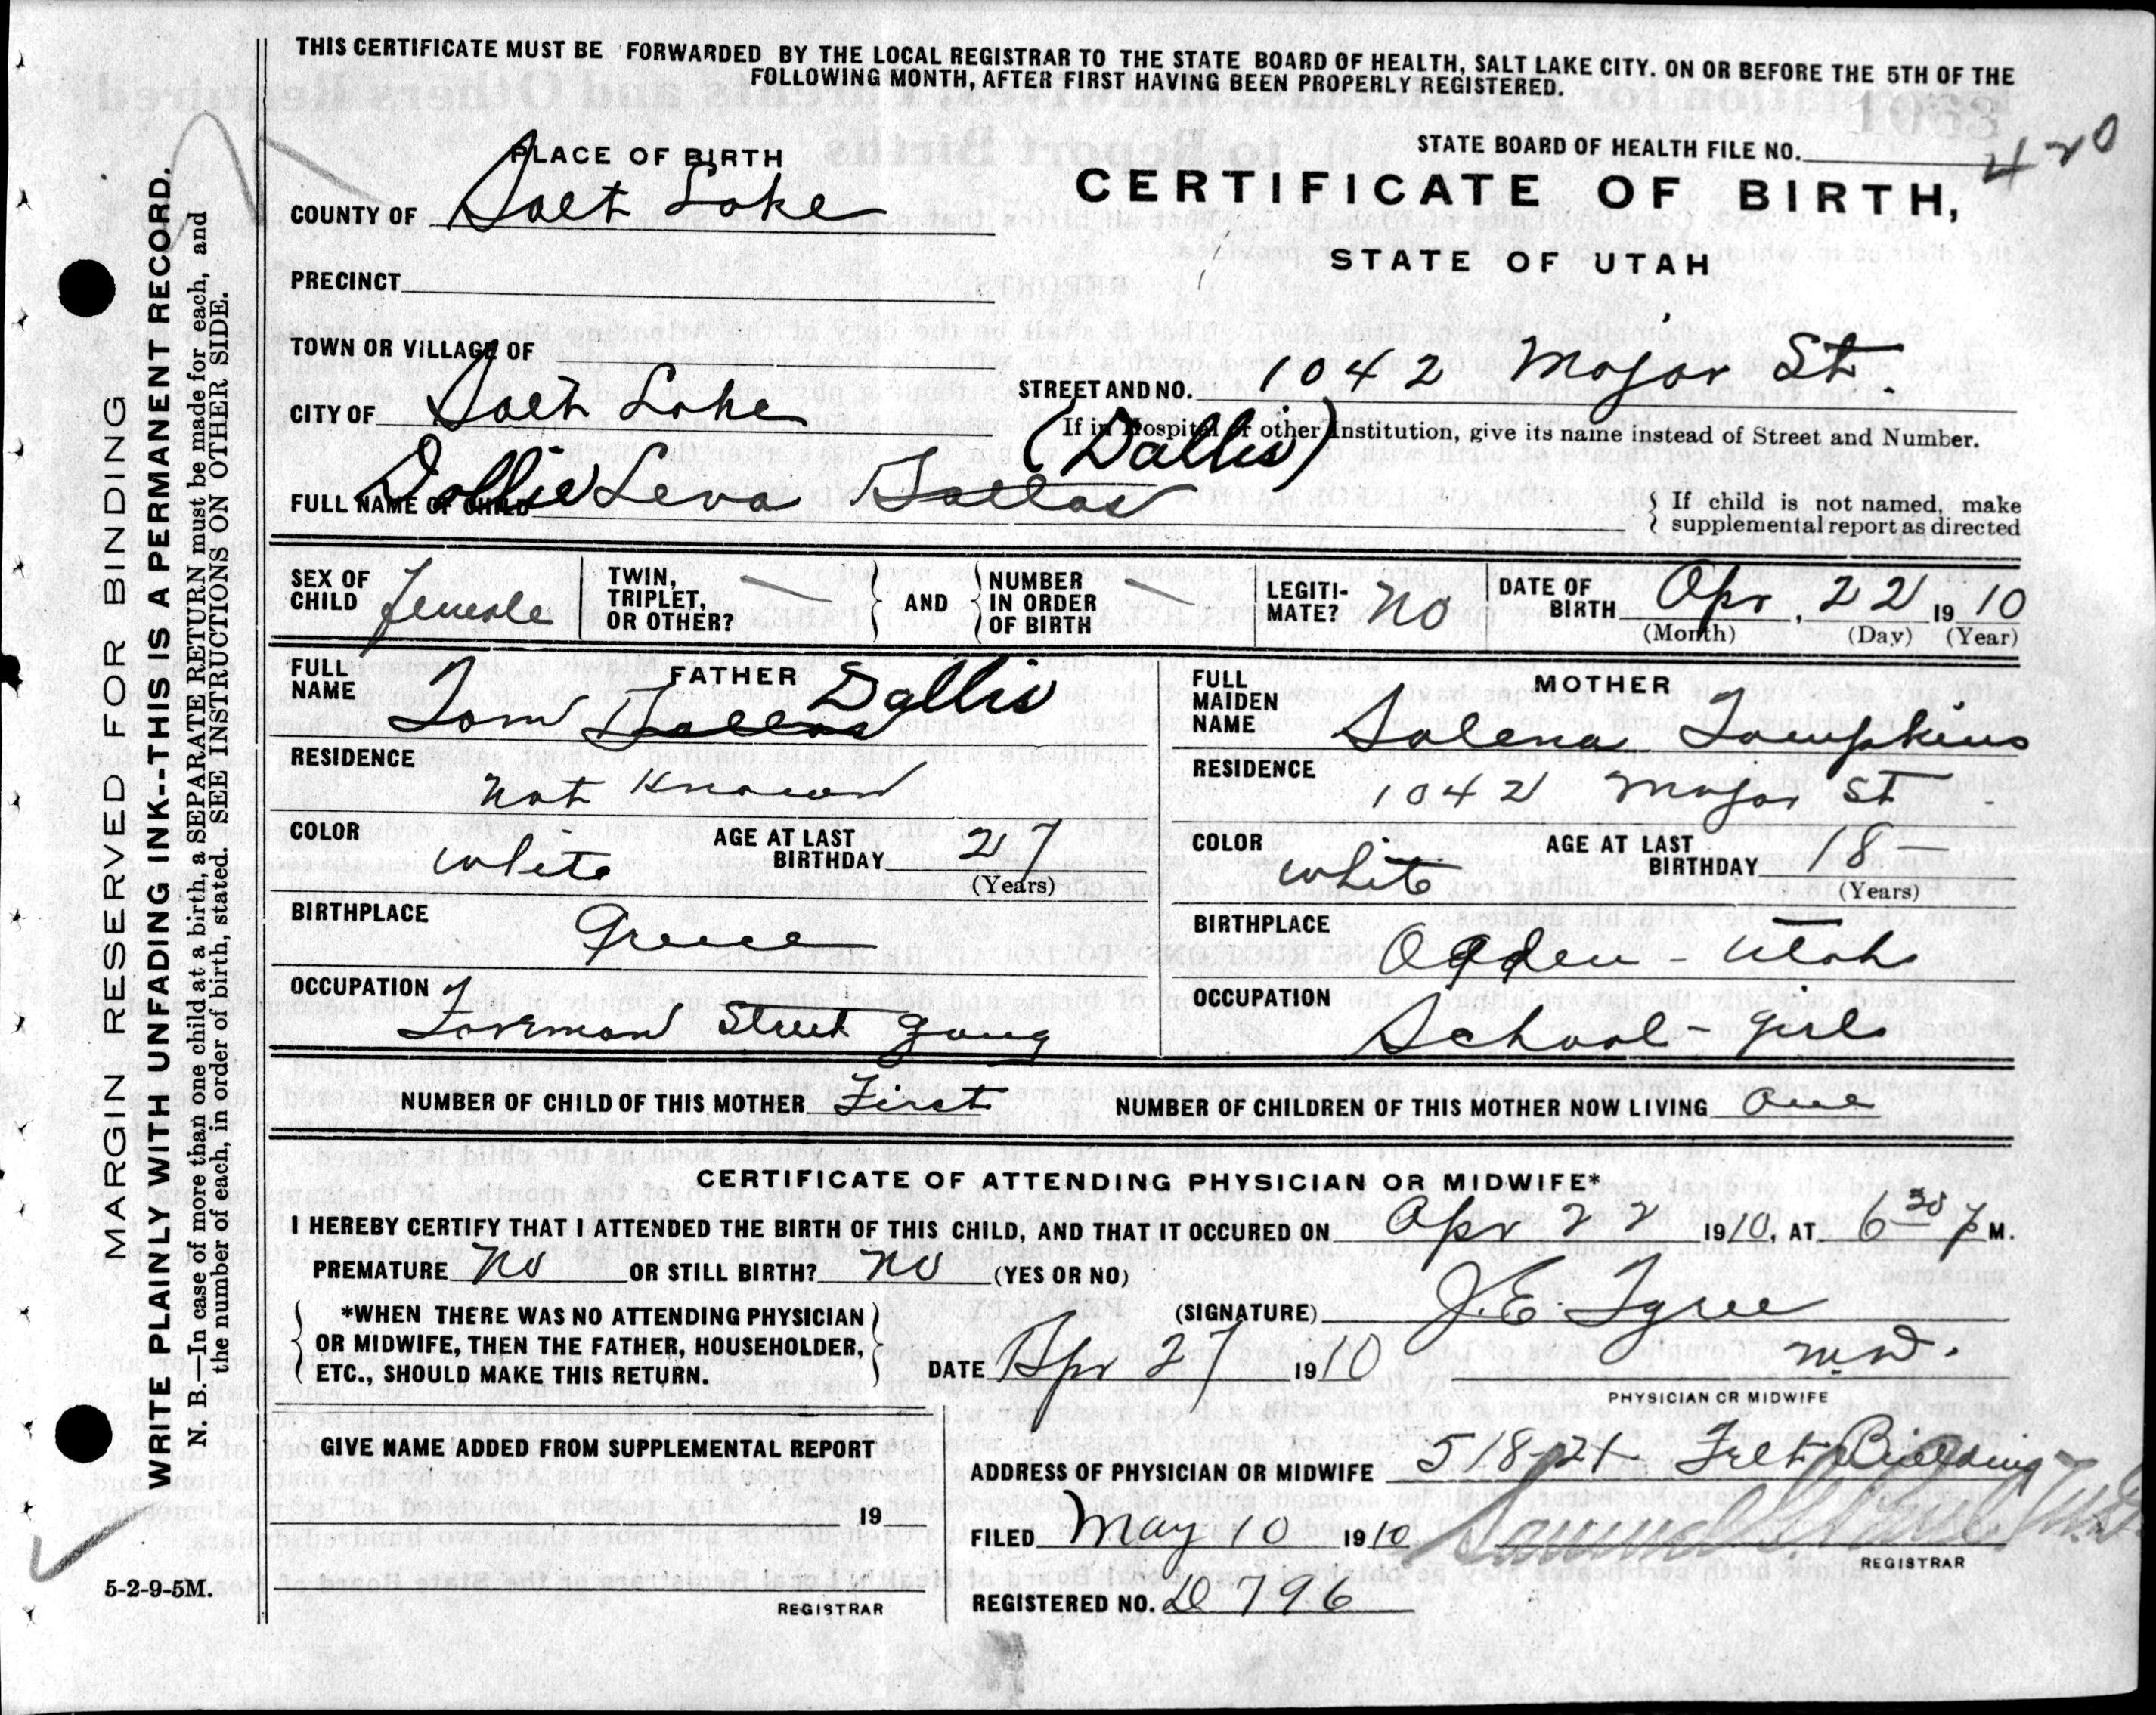 THIS CERTIFICATE MUST BE FORWARDED BY THE LOCAL REGISTRAR TO THE STATE BOARD OF HEALTH, SALT LAKE CITY. ON OR BEFORE THE 5TH OF THE
FOLLOWING MONTH, AFTER FIRST HAVING BEEN PROPERLY REGISTERED.
MARGIN RESERVED FOR BINDING
WRITE PLAINLY WITH UNFADING INK--THIS IS A PERMANENT RECORD.
N. B.—In case of more than one child at a birth, a SEPARATE RETURN must be made for each, and
the number of each, in order of birth, stated. SEE INSTRUCTIONS ON OTHER SIDE.
STATE BOARD OF HEALTH FILE NO. 420
PLACE OF BIRTH
CERTIFICATE OF BIRTH,
COUNTY OF Salt Lake
STATE OF UTAH
PRECINCT
TOWN OR VILLAGE OF
STREET AND NO. 1042 Major St.
CITY OF Salt Lake
If in Hospital or other Institution, give its name instead of Street and Number.
(Dallis)
FULL NAME OF CHILD Dollie Leva Dallas
If child is not named, make
supplemental report as directed
SEX OF CHILD Female
TWIN, TRIPLET, OR OTHER? —
AND
NUMBER IN ORDER OF BIRTH —
LEGITI-MATE? No
DATE OF BIRTH Apr, 22 1910
(Month) (Day) (Year)
FATHER
FULL NAME Tom Dallas Dallis
RESIDENCE not Known
COLOR white AGE AT LAST BIRTHDAY 27
(Years)
BIRTHPLACE Greece
OCCUPATION Foreman Street gang
MOTHER
FULL MAIDEN NAME Salena Tompkins
RESIDENCE 1042 Major St
COLOR white AGE AT LAST BIRTHDAY 18 —
(Years)
BIRTHPLACE Ogden - Utah
OCCUPATION School - girl
NUMBER OF CHILD OF THIS MOTHER First NUMBER OF CHILDREN OF THIS MOTHER NOW LIVING One
CERTIFICATE OF ATTENDING PHYSICIAN OR MIDWIFE*
I HEREBY CERTIFY THAT I ATTENDED THE BIRTH OF THIS CHILD, AND THAT IT OCCURED ON Apr 22 1910, AT 6 30 P M.
PREMATURE No OR STILL BIRTH? No (YES OR NO)
*WHEN THERE WAS NO ATTENDING PHYSICIAN
OR MIDWIFE, THEN THE FATHER, HOUSEHOLDER,
ETC., SHOULD MAKE THIS RETURN.
(SIGNATURE) J. E. Tyree
M.D.
DATE Apr 27 1910
PHYSICIAN OR MIDWIFE
GIVE NAME ADDED FROM SUPPLEMENTAL REPORT
19
REGISTRAR
ADDRESS OF PHYSICIAN OR MIDWIFE 518-21 Felt Building
FILED May 10 1910 Samuel G. Paul M.D.
REGISTRAR
REGISTERED NO. D 796
5-2-9-5M.